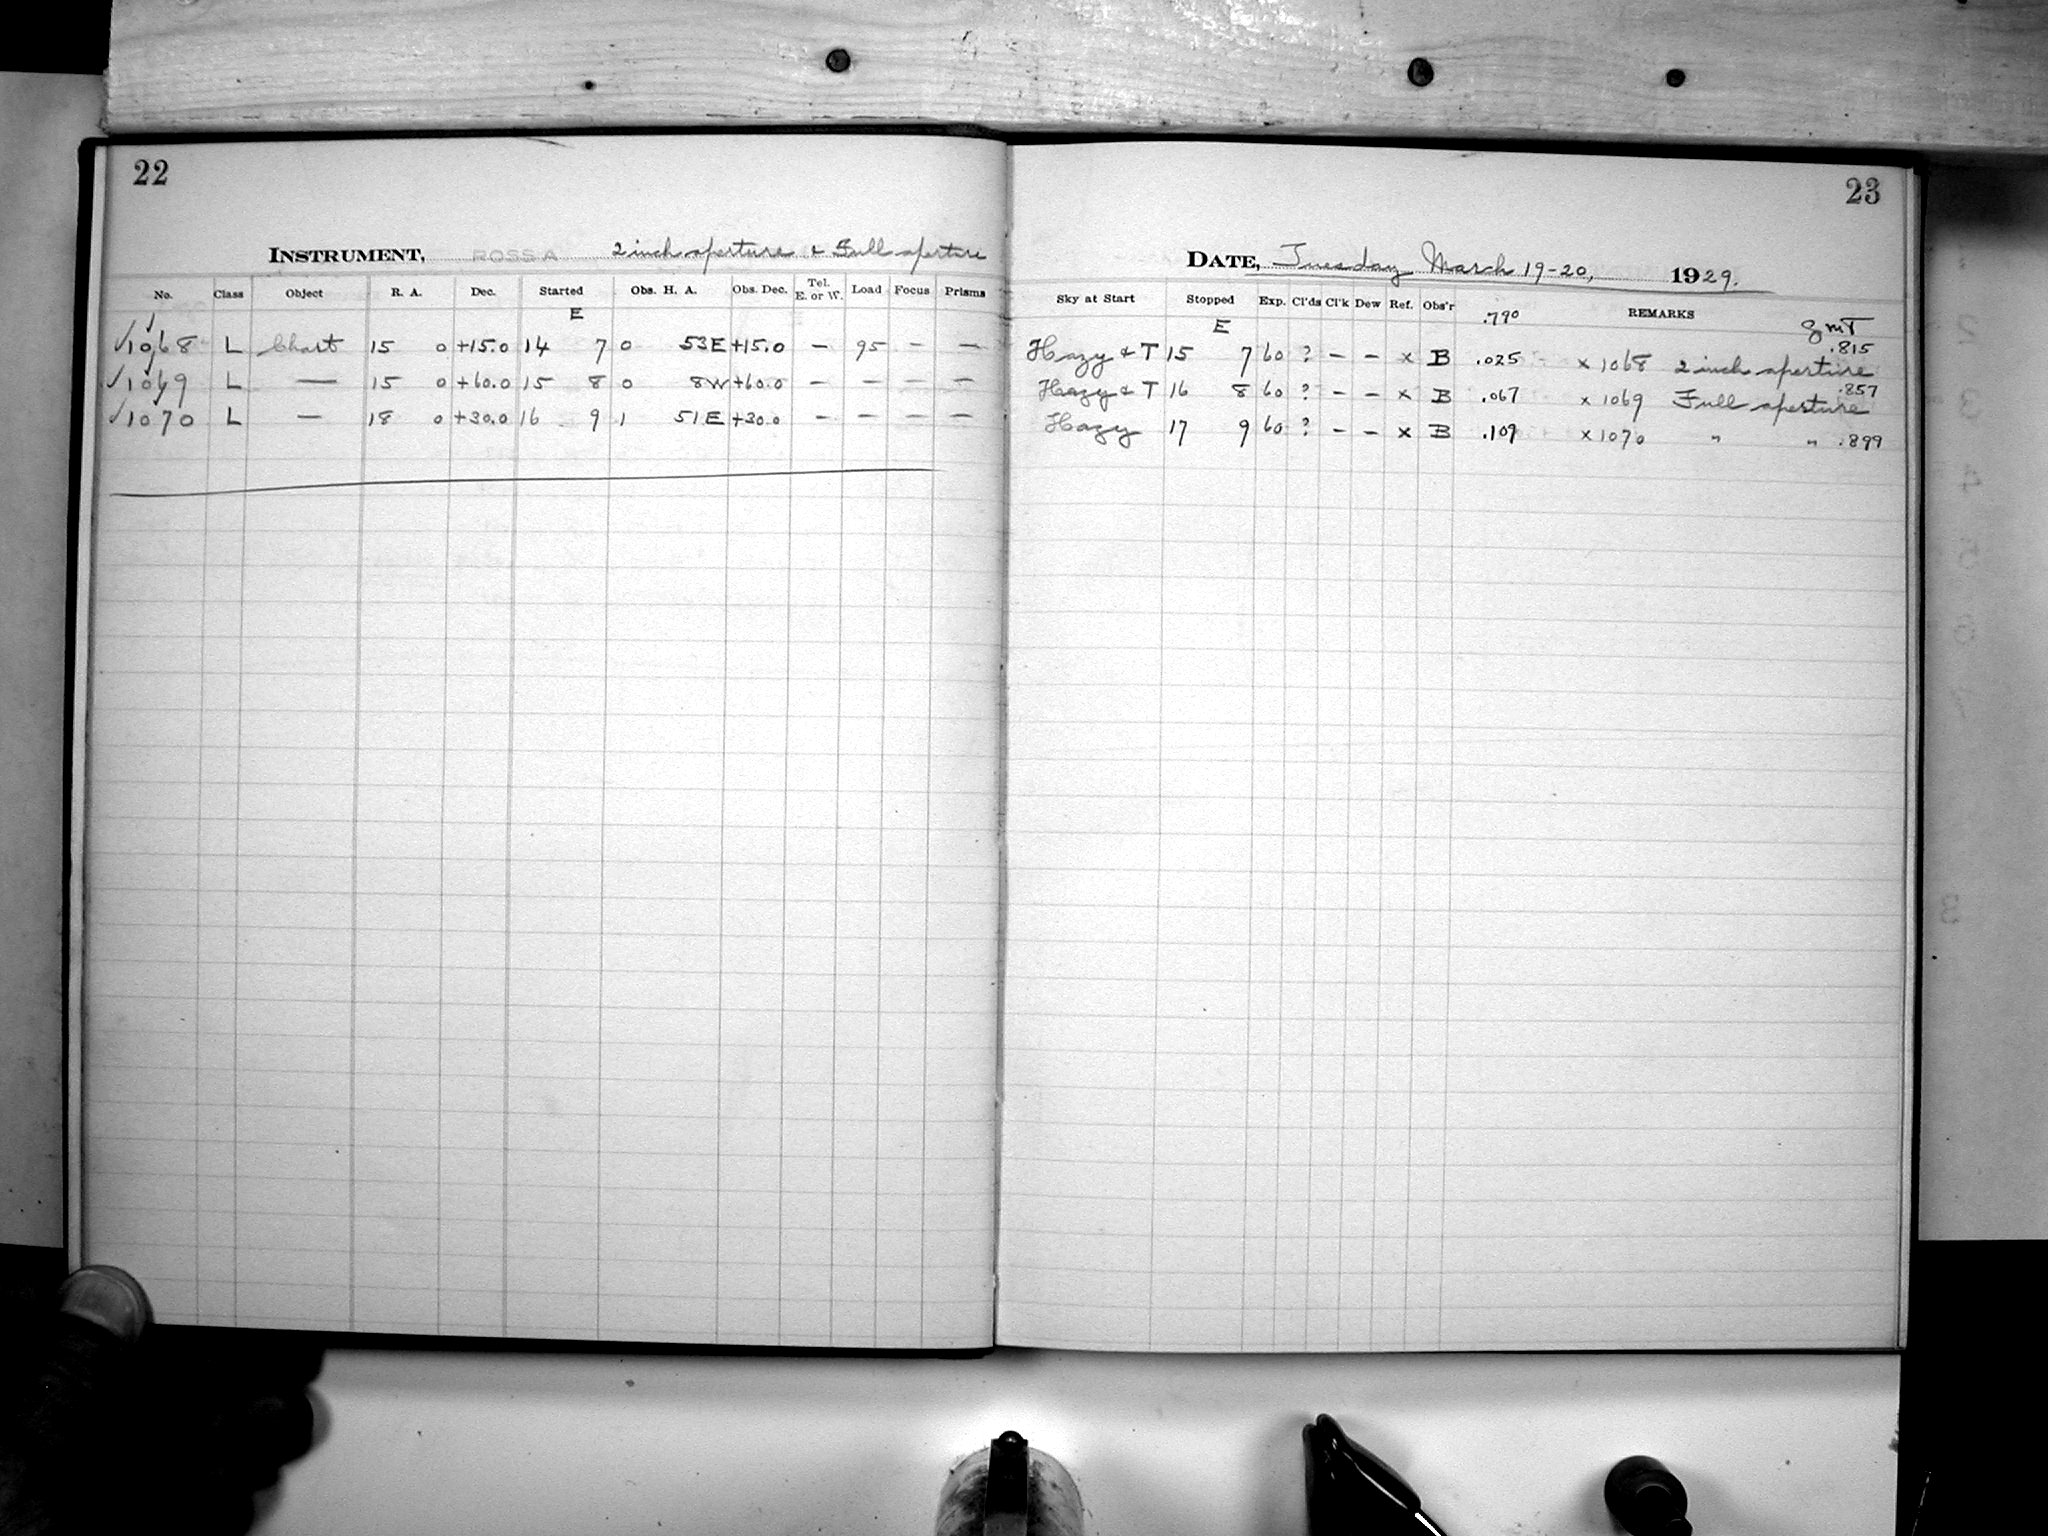 22
INSTRUMENT, ROSS A 2 inch aperture & Full aperture
No. Class Object R. A. Dec. Started Obs. H. A. Obs. Dec. Tel. E. or W. Load Focus Prisms
E
✓1068 L Chart 15 0 +15.0 14 7 0 53E +15.0 – 95 – –
✓1069 L — 15 0 +60.0 15 8 0 8W +60.0 – – – –
✓1070 L — 18 0 +30.0 16 9 1 51E +30.0 – – – –
23
DATE, Tuesday March 19-20, 1929.
Sky at Start Stopped Exp. Cl'ds Cl'k Dew Ref. Obs'r .790 REMARKS
E GMT
Hazy & T 15 7 60 ? – – x B .025 x 1068 2 inch aperture .815
Hazy & T 16 8 60 ? – – x B .067 x 1069 Full aperture .857
Hazy 17 9 60 ? – – x B .109 x 1070 " " .899